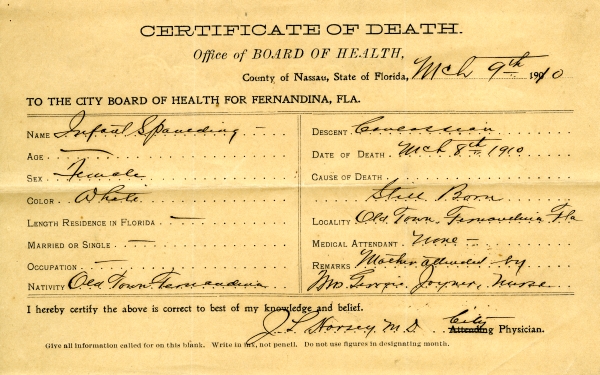 CERTIFICATE OF DEATH.
Office of BOARD OF HEALTH,
County of Nassau, State of Florida, Mch 9th 1910
TO THE CITY BOARD OF HEALTH FOR FERNANDINA, FLA.
NAME Infant Spaulding –
AGE —
SEX Female
COLOR White
LENGTH RESIDENCE IN FLORIDA —
MARRIED OR SINGLE —
OCCUPATION —
NATIVITY Old Town Fernandina
DESCENT Caucassian
DATE OF DEATH Mch 8th 1910
CAUSE OF DEATH
Still Born
LOCALITY Old Town, Fernandina Fla
MEDICAL ATTENDANT None –
REMARKS Mother attended by
Mrs Georgie Joyner, Nurse
I hereby certify the above is correct to best of my knowledge and belief.
J. L. Horsey M.D. City
Attending Physician.
Give all information called for on this blank. Write in ink, not pencil. Do not use figures in designating month.